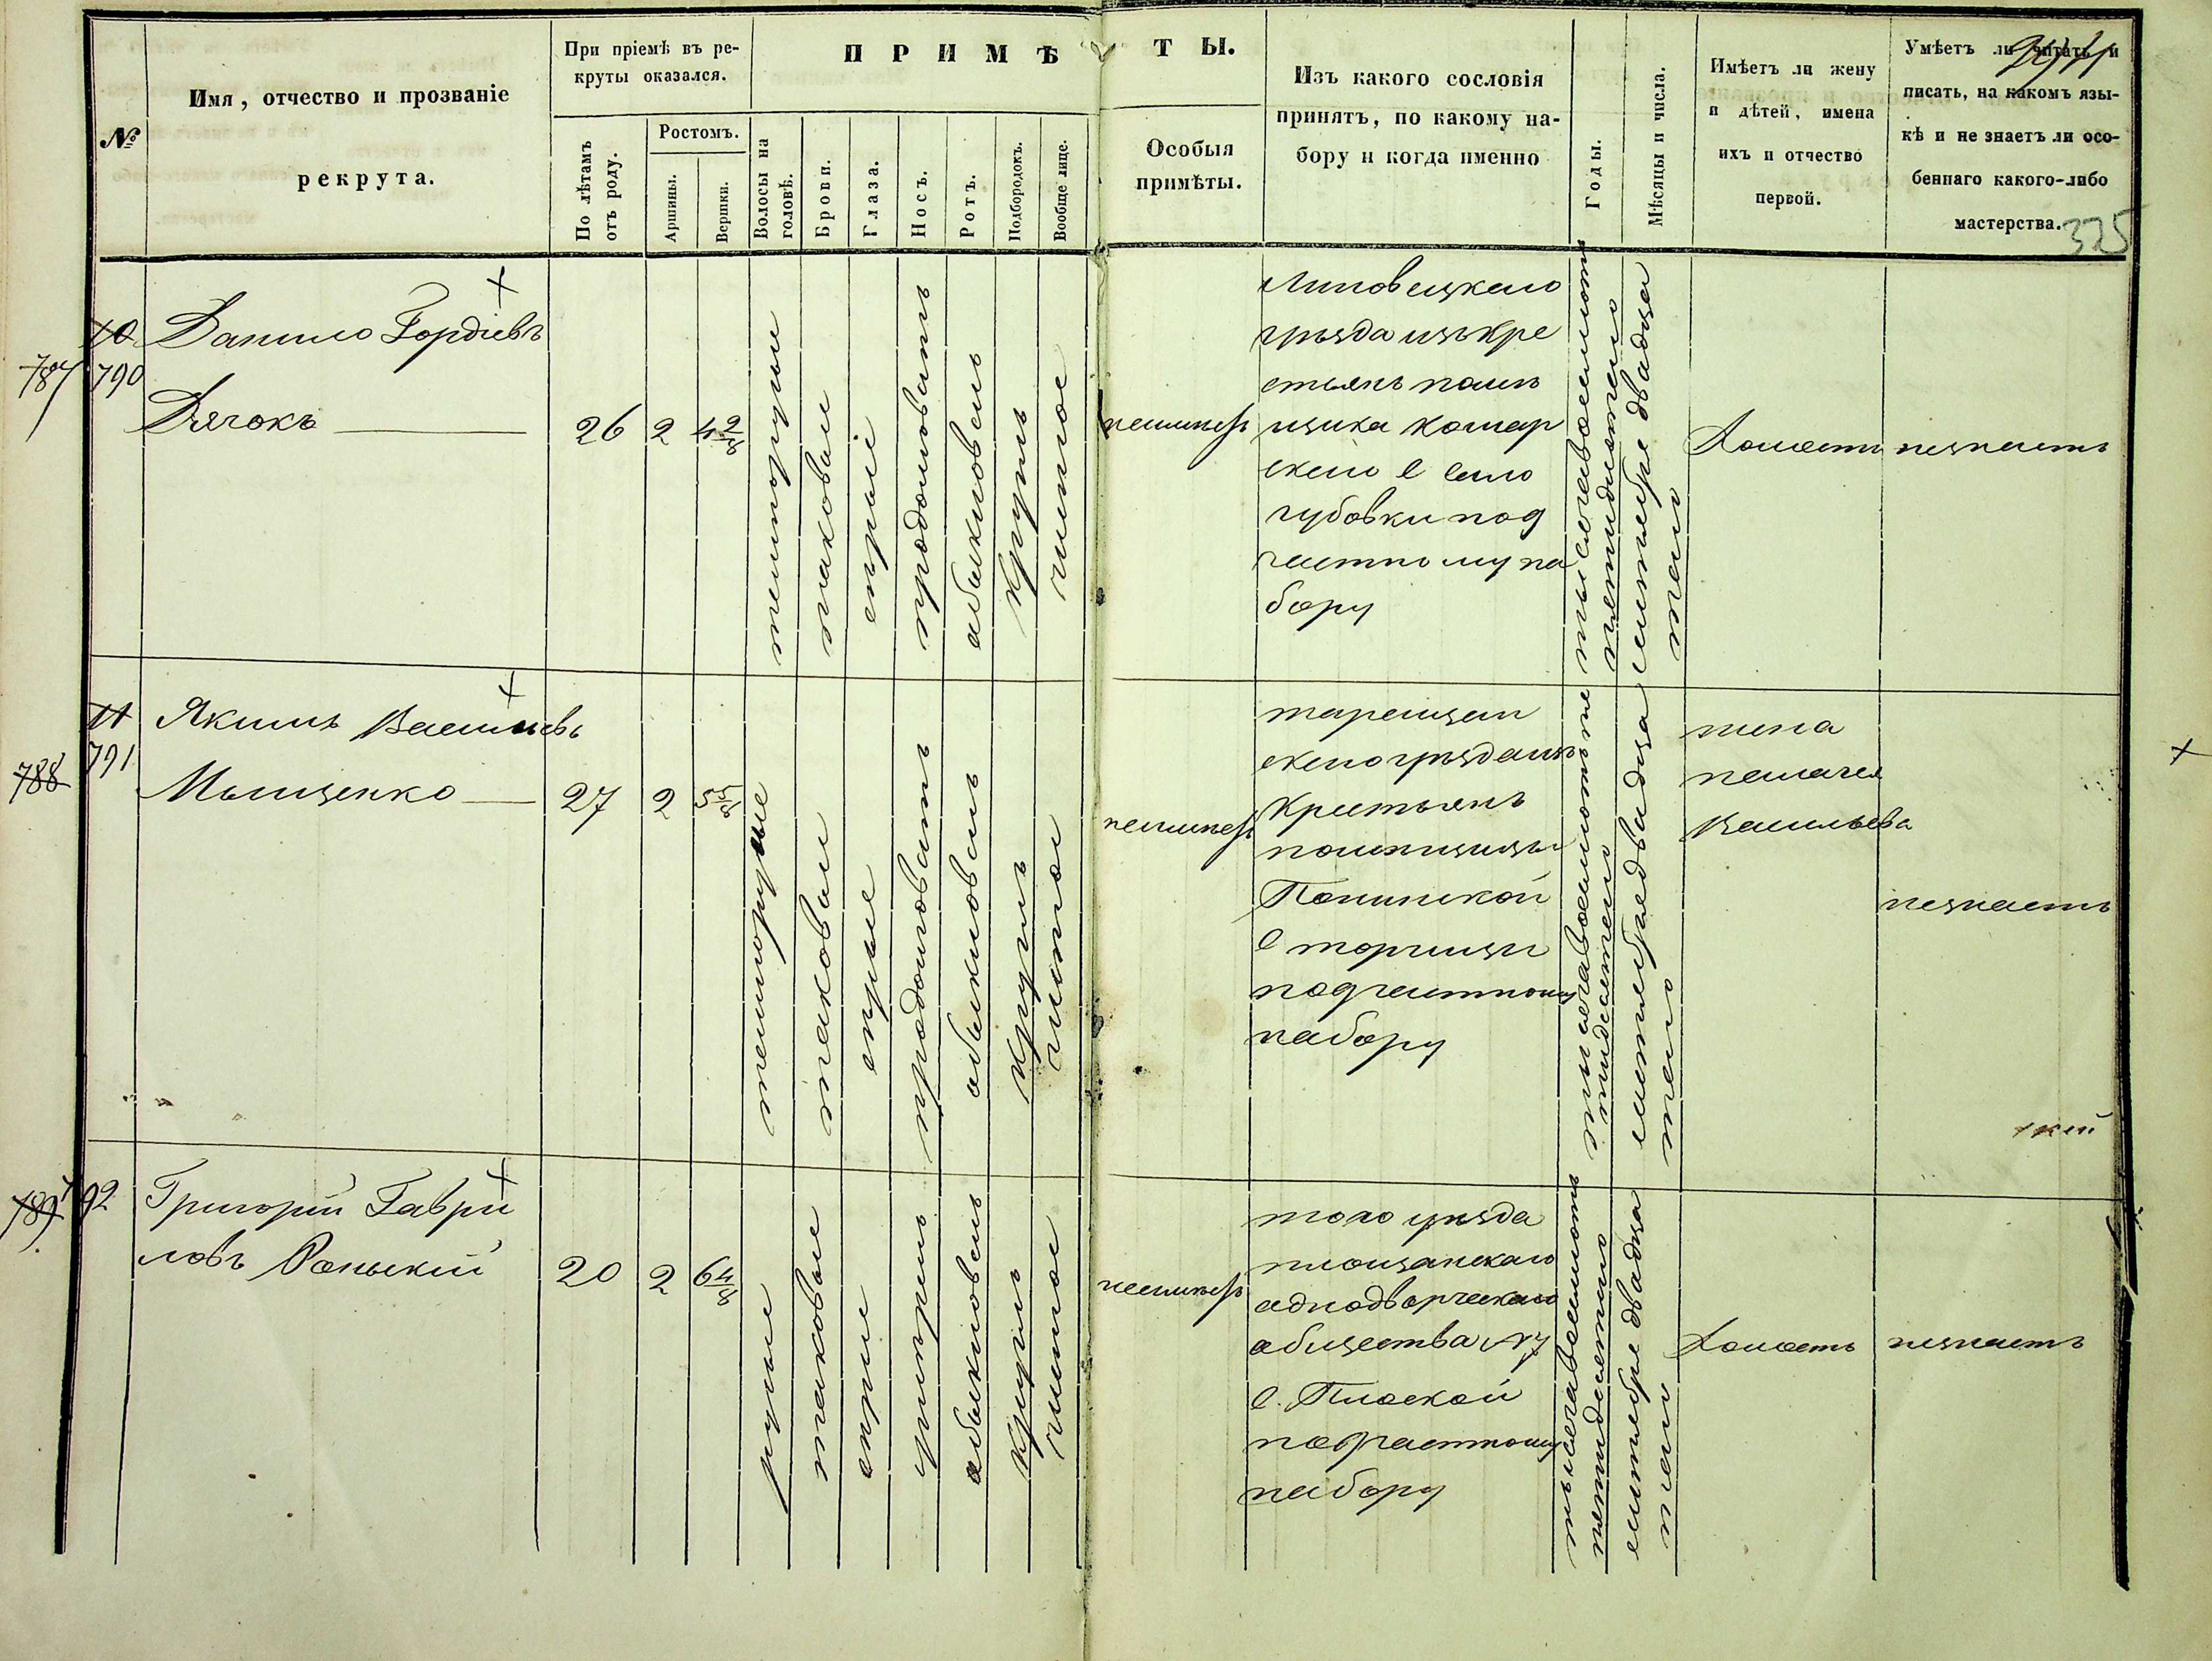 №
Имя, отчество и прозваніе
рекрута.
При пріемѣ въ ре-
круты оказался.
По лѣтамъ
отъ роду.
Ростомъ.
Аршины.
Вершки.
ПРИМѢТЫ.
Волосы на
головѣ.
Брови.
Глаза.
Носъ.
Ротъ.
Подбородокъ.
Вообще лице.
Особыя
примѣты.
Изъ какого сословія
принятъ, по какому на-
бору и когда именно
Годы.
Мѣсяцы и числа.
Имѣетъ ли жену
и дѣтей, имена
ихъ и отчество
первой.
Умѣетъ ли читать и
писать, на какомъ язы-
кѣ и не знаетъ ли осо-
беннаго какого-либо
мастерства.
325
10
787 790
Данило Гордіевъ
Дячокъ
26 2 4 2/8
темнорусые
таковыи
сѣрыи
продолговатъ
обыкновенъ
круглъ
чистое
неимѣетъ
Липовецкаго
уѣзда изъ кре
стьянъ помѣ
щика
с село
под
частному на
бору
тысяча восемсотъ
пятидесятого
сентября двадца
того
Холостъ
незнаетъ
11
788 791
Якимъ Васильевъ
Мыщенко
27 2 5 5/8
темнорусые
таковыи
сѣрые
продолговатъ
обыкновенъ
круглъ
чистое
неимѣетъ
таращан
скаго уѣзда изъ
крестьянъ
помѣщицы
с торчицы
под частному
набору
тысяча восемсотъ пя
тидесятого
сентября двадца
того
жена
Васильева
незнаетъ
789 792
Григорій Гаври
ловъ
20 2 6 4/8
русые
таковые
сѣрые
обыкновенъ
круглъ
чистое
неимѣетъ
того уѣзда
однодворческаго
общества
с. Плоской
под частному
набору
тысяча восемсотъ
пятидесятого
сентября двадца
того
Холостъ
незнаетъ